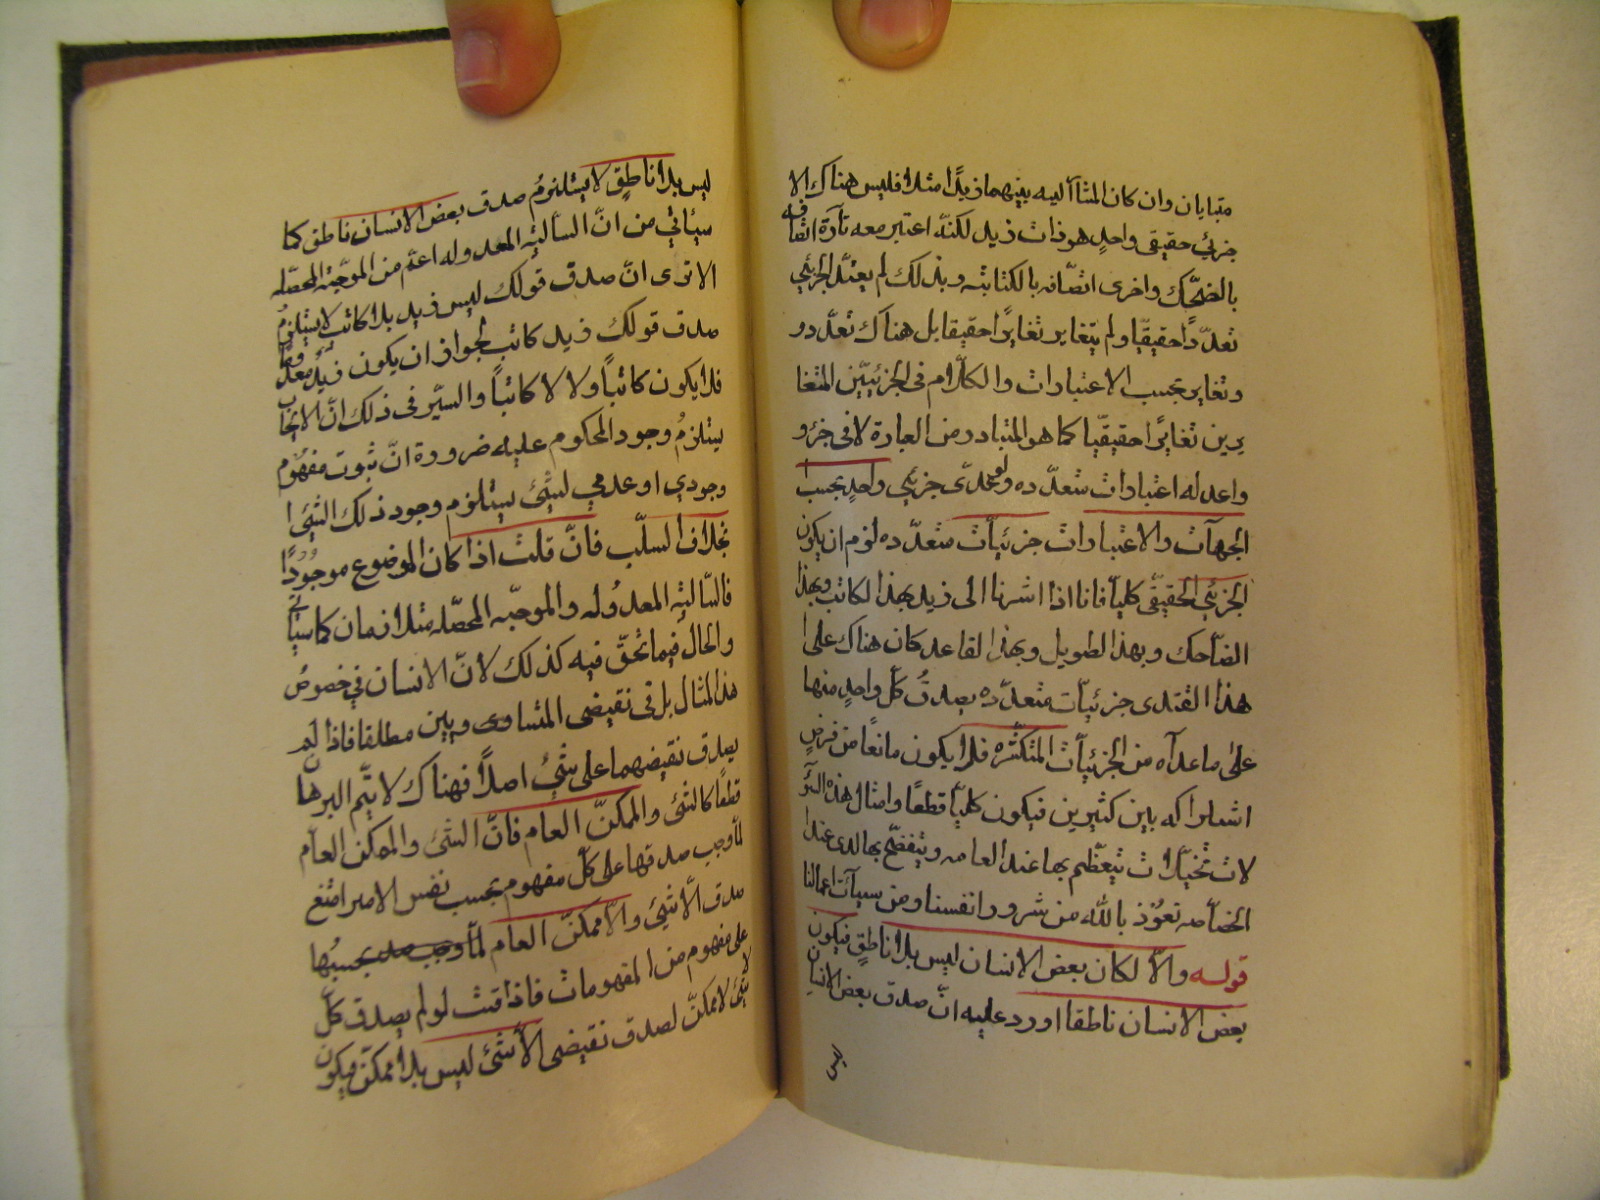 متباينان وان كان المشار اليه بينهما زيدًا مثلا فليس هناك الا
جزئي حقيقي واحدٍ هو ذات زيد لكنّه اعتبر معه تارة اتصافه
بالضحك واخرى اتصافه بالكتابته وبذلك لم يتعدّد الجزئي
تعدّدًا حقيقيّا ولم يتغاير تغايرًا حقيقيا بل هناك تعدّد و
وتغاير بحسب الاعتبارات والكلام في الجزئيّين المتغا
يرين تغايرًا حقيقيّا كما هو المتبادر من العبارة لا في جزؤ
واحد له اعتبارات متعدّده ولو عدّى جزئي واحدٍ بحسب
الجهات والاعتبارات جزئيّات متعدّده لزم ان يكون
الجزئي الحقيقي كليّا فانا اذا اشرنا الى زيد بهذا الكاتب وبهذا
الضاحك وبهذا الطويل وبهذا القاعد كان هناك على
هذا التقدير جزئيّات متعدّده يصدقُ كلّ واحدٍ منها
على ما عداه من الجزئيّات المتكثره فلا يكون مانعًا من فرضٍ
اشتراكه بين كثيرين فيكون كليّا قطعًا وامثال هذه التو
لات تخيّلات يتعظّم بها عند العامه ويتفضّح بها لدى عند
الخاصه نعوذ بالله من شرور انفسنا ومن سيآت اعمالنا
قوله والّا لكان بعض الانسان ليس بلا ناطقٍ فيكون
بعض الانسان ناطقا اورد عليه انّ صدق بعض الانسان
ليس
ليس بلا ناطقٍ لا يستلزمُ صدق بعض الانسان ناطق كما
سيأتي من انّ السالبة المعدوله اعمّ من الموجبة المحصّله
الا ترى انّ صدق قولك ليس زيد بلا كاتب لا يستلزمُ
صدق قولك زيد كاتب لجواز ان يكون زيدٌ معدومًا
فلا يكون كاتباً ولا لا كاتباً والسرّ في ذلك انّ الايجاب
يستلزمُ وجود المحكوم عليه ضرورة انّ ثبوت مفهوم
وجودي او عدمي لشيئ يستلزم وجود ذلك الشيئ
بخلاف السلب فانّ قلت اذا كان الموضوع موجودًا
فالسّالبة المعدوله والموجبه المحصّله متلازمان كما سيأتي
والحال فيما نحن فيه كذلك لانّ الانسان في خصوص
هذا المثال بل في نقيضي المتساويين مطلقا فاذا لم
يصدق نقيضهما على شيئ اصلاً فهناك لا يتمّ البرهان
قطعًا كالشيئ والممكن العام فانّ الشيئ والممكن العام
لمّا وجب صدقها على كلّ مفهوم بحسب نفس الامر امتنع
صدق الّا شيئ والّا ممكن العام بحسبها
على مفهوم من المفهومات فاذا قيث لو لم يصدق كلّ
لا شيئ لا ممكنّ لصدق نقيضى الّا شيئ ليس بلا ممكنّ فيكون